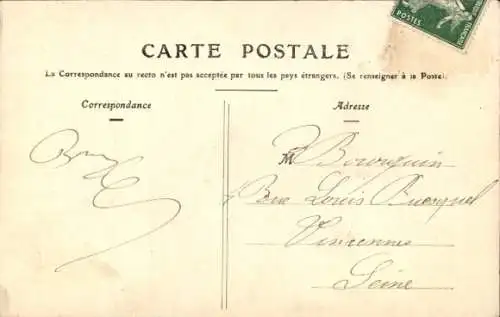 POSTES
CARTE POSTALE
La Correspondance au recto n'est pas acceptée par tous les pays étrangers. (Se renseigner à la Poste).
Correspondance
Adresse
M Bourquin
Rue Louis Buequel
Vincennes
Seine